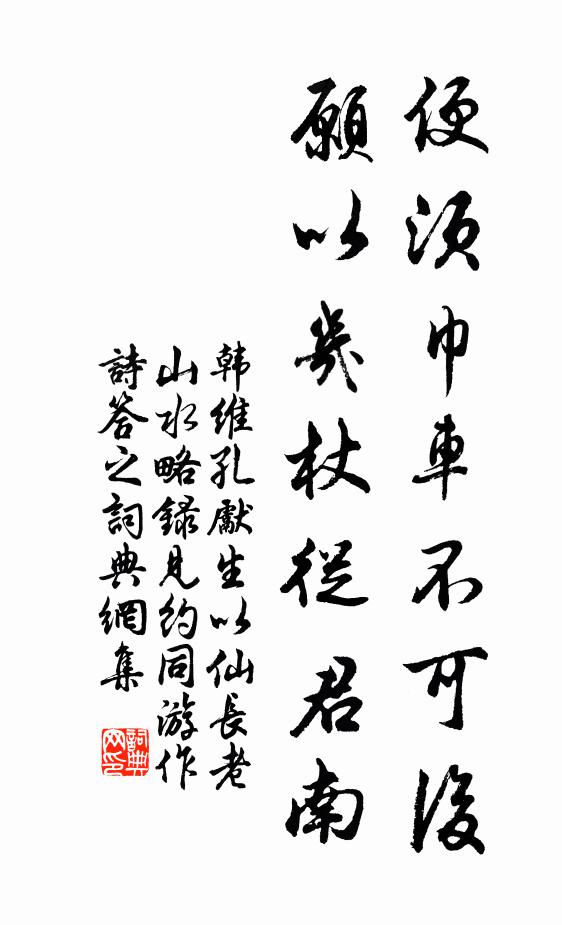 便須巾車不可後
願以幾杖從君南
韩維孔獻生以仙長老
山水略録見約同游作
詩答之詞典網集
詞典網印